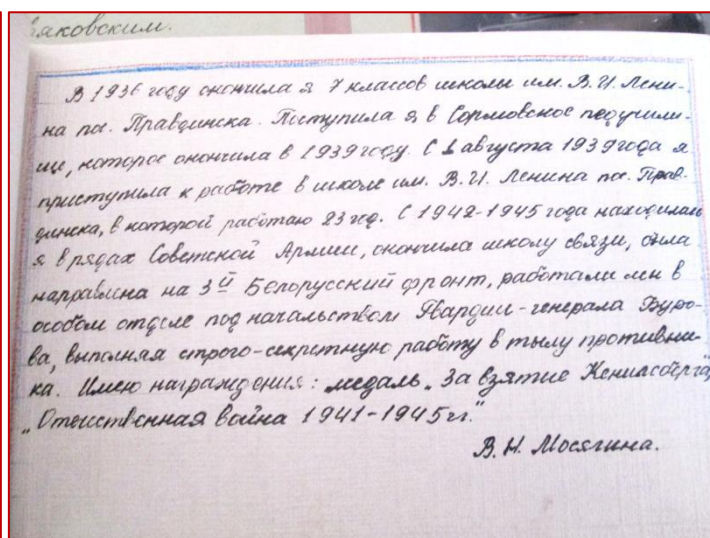 яковским.
В 1936 году окончила я 7 классов школы им. В.И. Лени-
на пос. Правдинска. Поступила я в Сормовское педучили-
ще, которое окончила в 1939 году. С 1 августа 1939 года я
приступила к работе в школе им. В.И. Ленина пос. Прав-
динска, в которой работаю 23 год. С 1942-1945 года находилась
я в рядах Советской Армии, окончила школу связи, была
направлена на 3й Белорусский фронт, работали мы в
особом отделе под начальством Гвардии-генерала Буро-
ва, выполняя строго-секретную работу в тылу противни-
ка. Имею награждения: медаль „За взятие Кенигсберга",
„Отечественная война 1941-1945 гг."
В.Н. Мосягина.